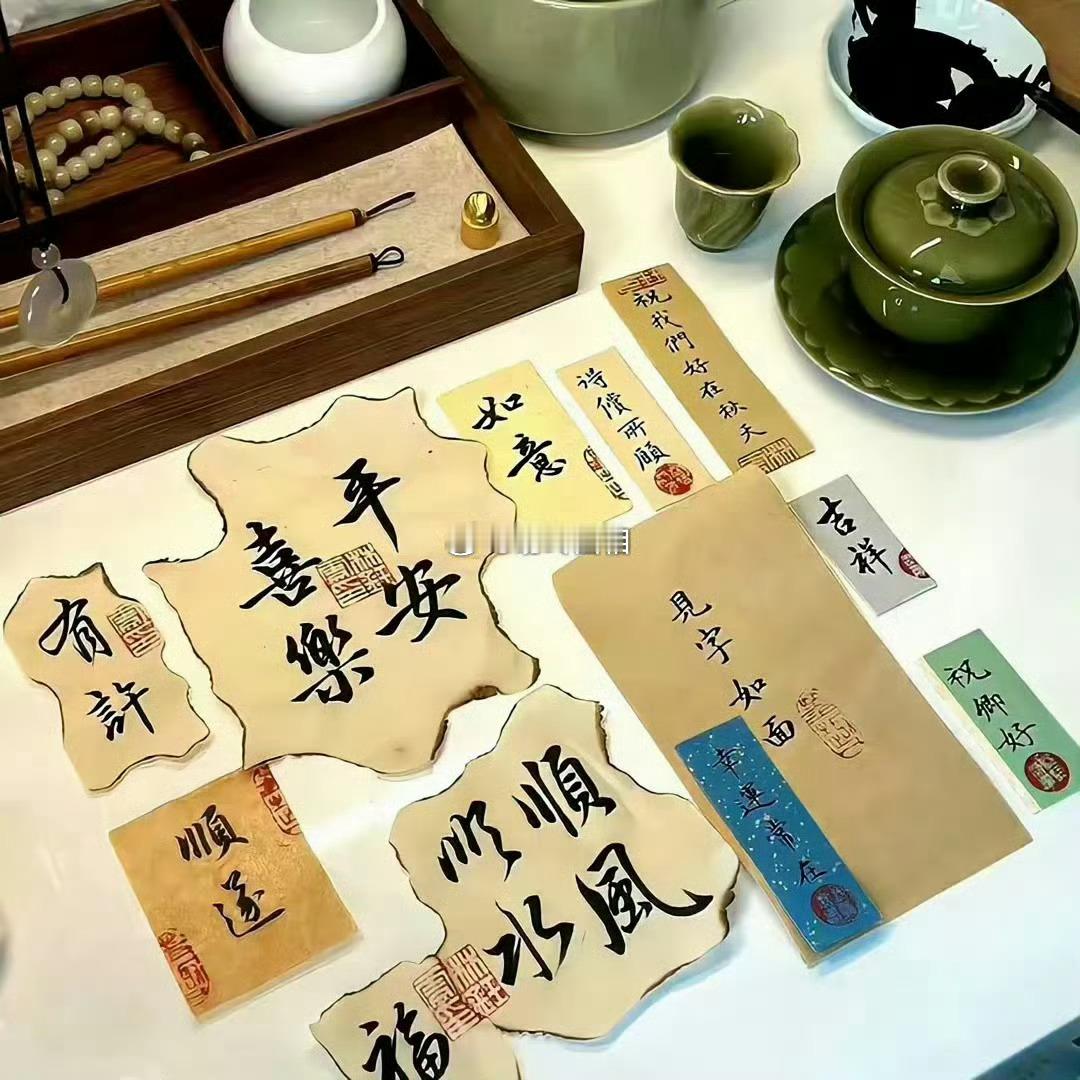 祝我們好在秋天
得償所願
如意
平安
喜樂
吉祥
有許
見字如面
祝卿好
幸運常在
順遂
順風
順水
福